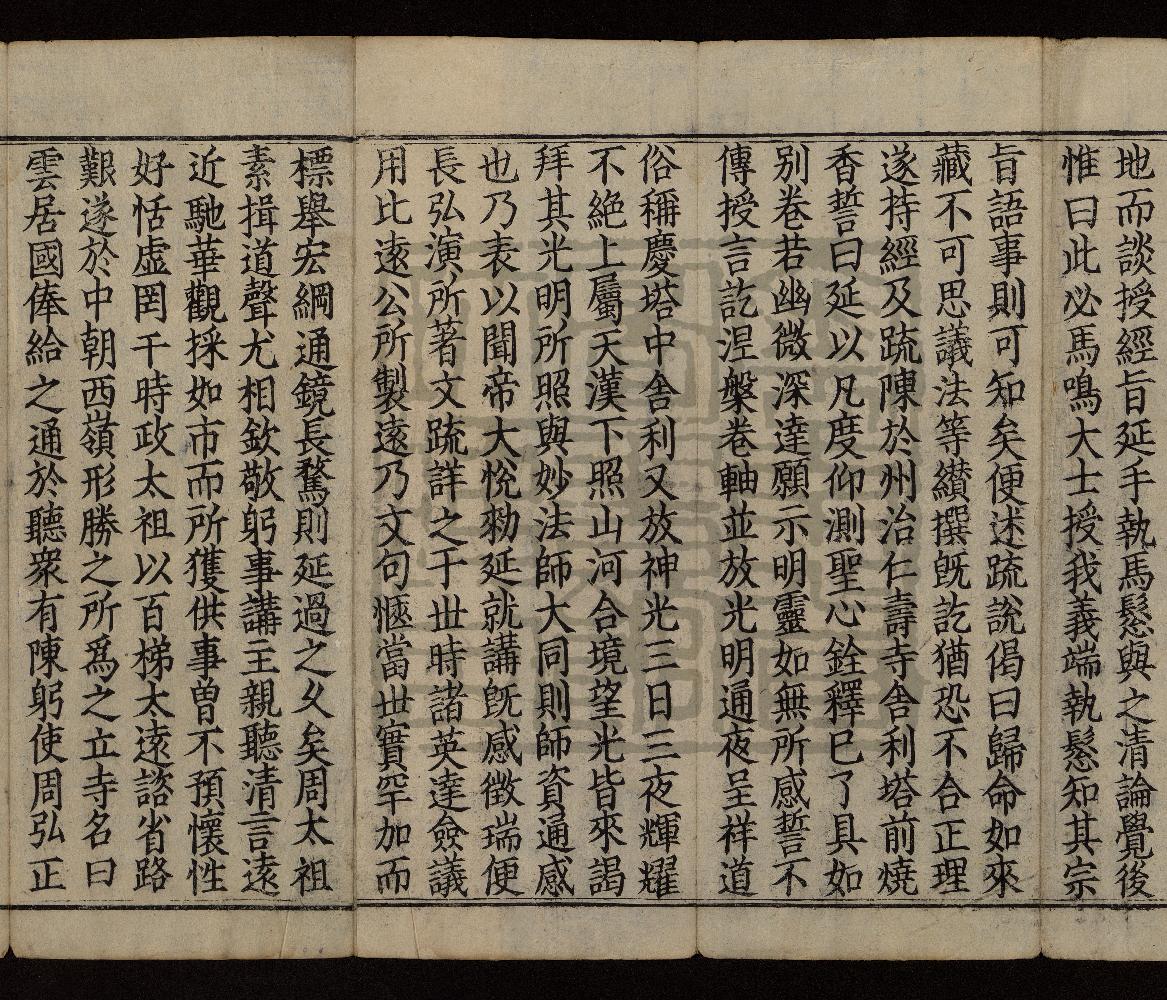 地而談授經旨延手執馬騣與之清論覺後
惟曰此必馬鳴大士授我義端執騣知其宗
旨語事則可知矣便述疏說偈曰歸命如來
藏不可思議法等纉撰旣訖猶恐不合正理
遂持經及疏陳於州治仁壽寺舍利塔前燒
香誓曰延以凡度仰測聖心銓釋已了具如
別卷若幽微深達願示明靈如無所感誓不
傳授言訖涅槃卷軸並放光明通夜呈祥道
俗稱慶塔中舍利又放神光三日三夜輝耀
不絶上屬天漢下照山河合境望光皆來謁
拜其光明所照與妙法師大同則師資通感
也乃表以聞帝大悅勑延就講旣感徵瑞便
長弘演所著文疏詳之于世時諸英達僉議
用比遠公所製遠乃文句愜當世實罕加而
標舉宏綱通鏡長騖則延過之久矣周太祖
素揖道聲尤相欽敬躬事講主親聽清言遠
近馳華觀採如市而所獲供事曾不預懷性
好恬虛罔干時政太祖以百梯太遠諮省路
艱遂於中朝西嶺形勝之所爲之立寺名曰
雲居國俸給之通於聽衆有陳躬使周弘正